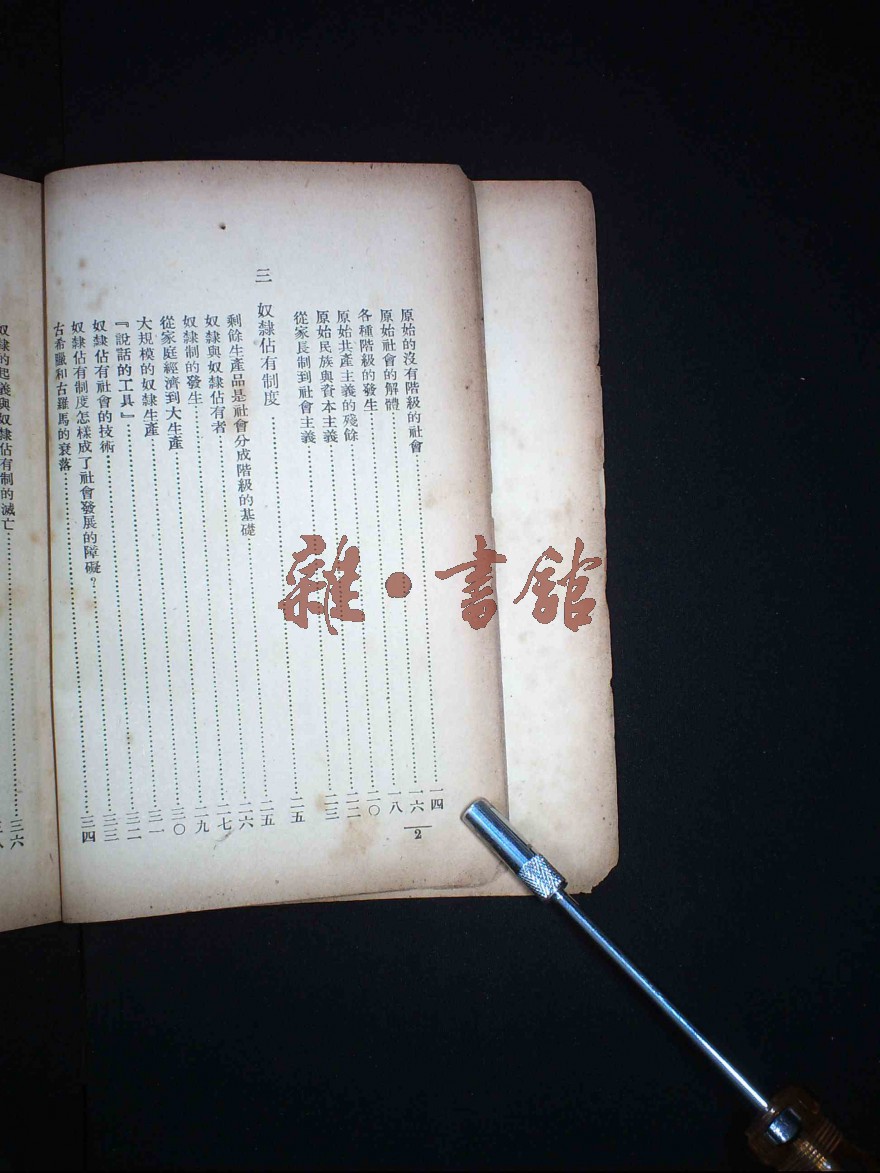 原始的沒有階級的社會……一四
原始社會的解體……一六
各種階級的發生……一八
原始共產主義的殘餘……二〇
原始民族與資本主義……二二
從家長制到社會主義……二三
三 奴隸佔有制度……二五
剩餘生產品是社會分成階級的基礎……二五
奴隸與奴隸佔有者……二六
奴隸制的發生……二七
從家庭經濟到大生產……二九
大規模的奴隸生產……三〇
『說話的工具』……三一
奴隸佔有社會的技術……三二
奴隸佔有制度怎樣成了社會發展的障礙？……三三
古希臘和古羅馬的衰落……三四
2
奴隸的起義與奴隸佔有制的滅亡……三六
雜·書館